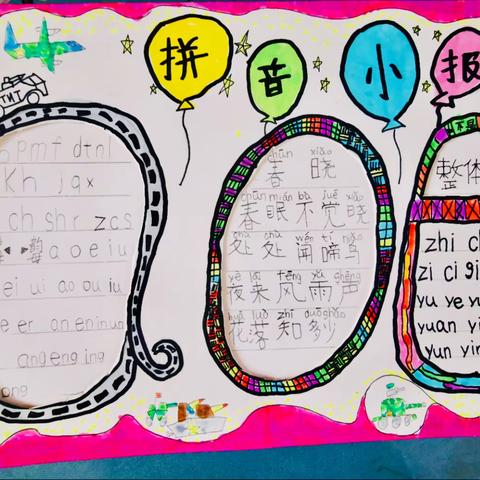 拼音小报
TMT
b p m f d t n l
k h j q x
ch sh r z c s
a o e i u
ei ui ao ou iu
e er an en in un
ang eng ing
ong
chūn xiǎo
春晓
chūn mián bù jué xiǎo
春眠不觉晓
chù chù wén tí niǎo
处处闻啼鸟
yè lái fēng yǔ shēng
夜来风雨声
huā luò zhī duō shǎo
花落知多少
整体
zhi ch
zi ci si
yu ye yu
yuan yi
yun yin